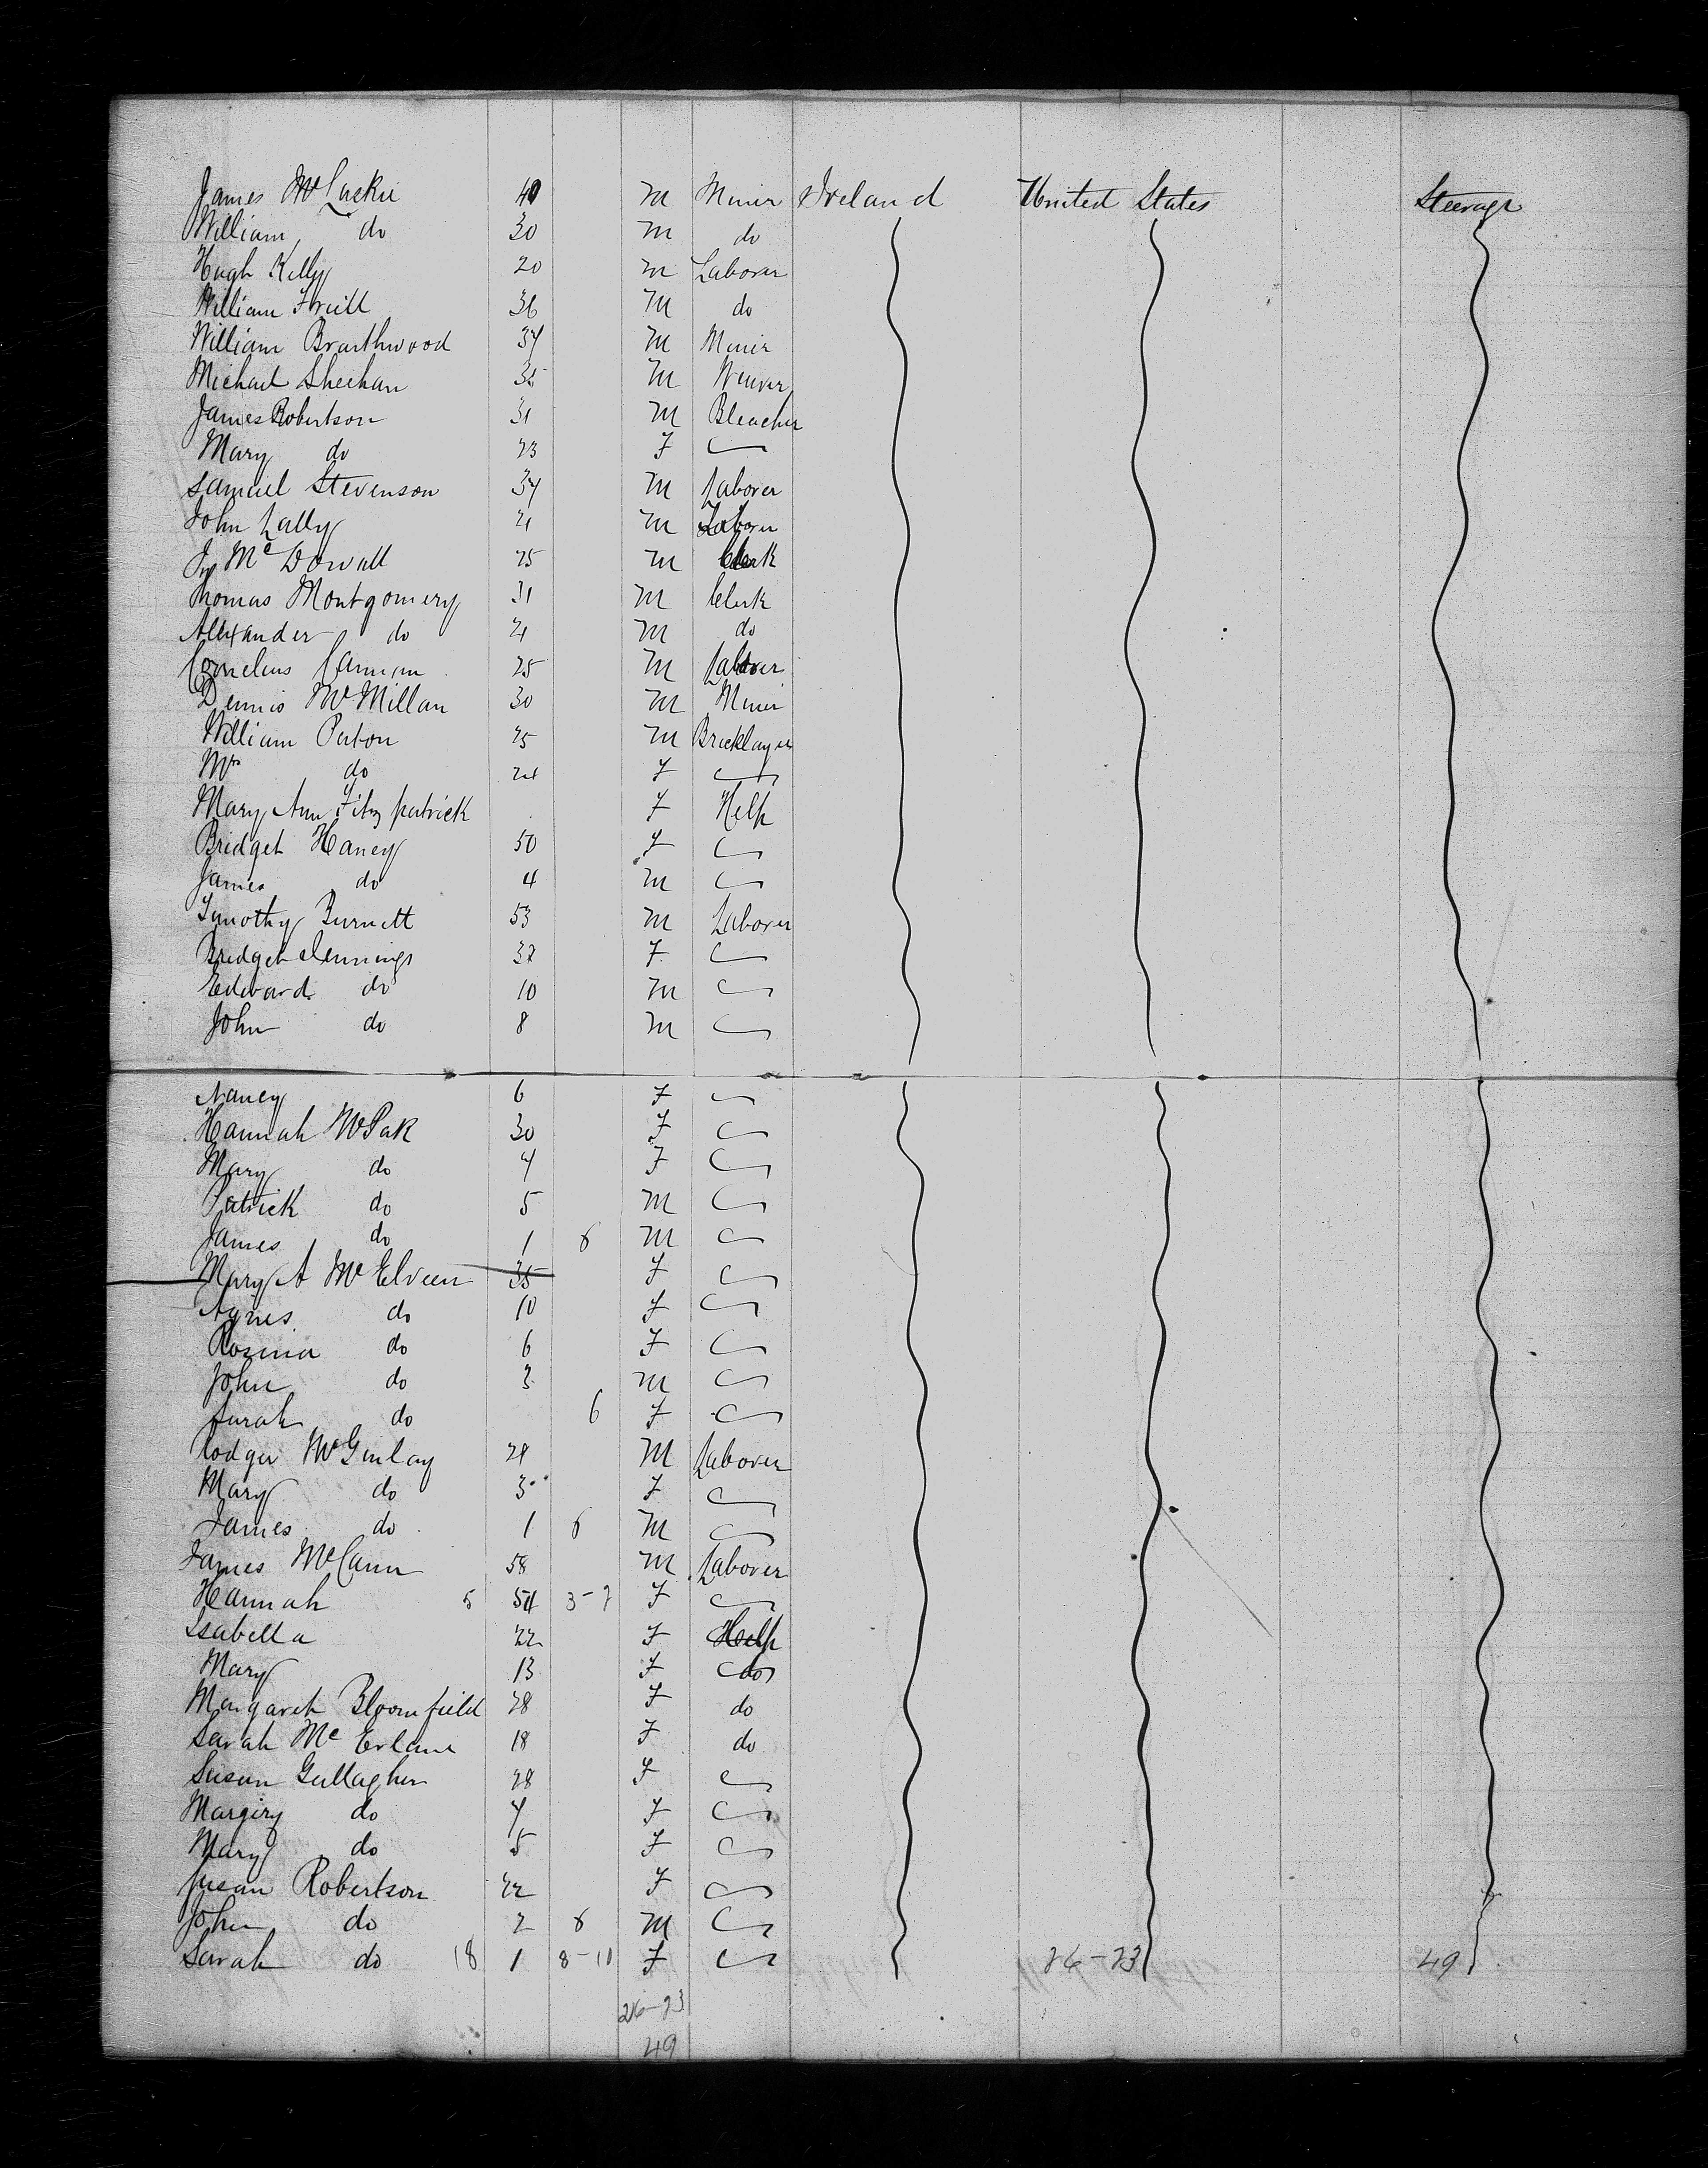 James McLuckie 40 M Miner Ireland United States Steerage
William do 30 M do
Hugh Kelly 20 M Laborer
William 36 M do
William Braithwood 34 M Miner
Michael Sheehan 35 M Weaver
James Robertson 31 M Bleacher
Mary do 23 F
Samuel Stevenson 34 M Laborer
John Lally 21 M Laborer
Jno McDowall 25 M Clerk
Thomas Montgomery 31 M Clerk
Alexander do 21 M do
Cornelius Cannion 25 M Laborer
Dennis McMillan 30 M Miner
William Parton 25 M Bricklayer
Mrs do 24 F
Mary Ann Fitzpatrick F Help
Bridget Haney 50 F
James do 4 M
Timothy Burnett 53 M Laborer
Bridget Jennings 32 F
Edward do 10 M
John do 8 M
Nancy 6 F
Hannah McPak 30 F
Mary do 7 F
Patrick do 5 M
James do 1 6 M
Mary A McElveen 35 F
Agnes do 10 F
Rosina do 6 F
John do 3 M
Sarah do 6 F
Rodger McGinlay 28 M Laborer
Mary do 30 F
James do 1 6 M
James McCann 58 M Laborer
Hannah 5 54 3-2 F
Isabella 22 F Help
Mary 13 F do
Margaret Bloomfield 28 F do
Sarah McErlane 18 F do
Susan Gallagher 28 F
Margery do 7 F
Mary do 5 F
Susan Robertson 22 F
John do 2 6 M
Sarah do 18 1 8-10 F 26-23 49
26-23
49